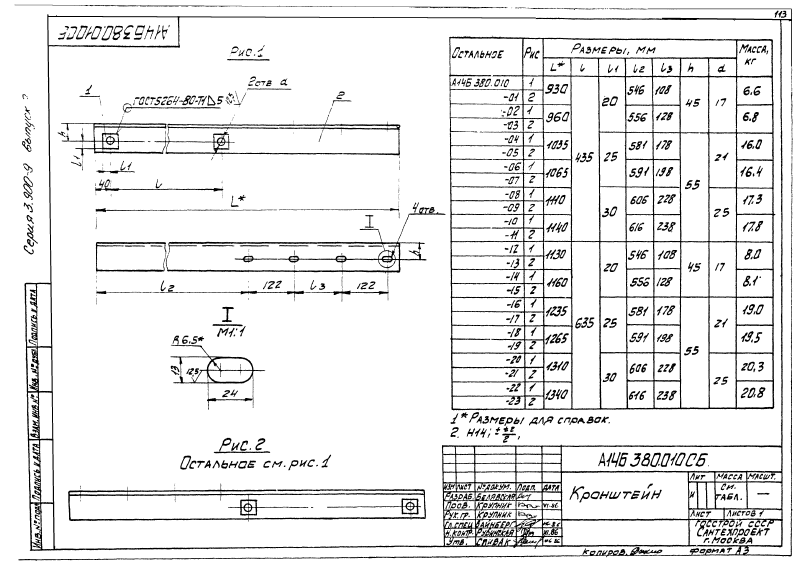 113
А14Б380.010СБ
Рис.1
2 отв. d
1
ГОСТ 5264-80-Т1 5
2
h
l1
l1
40
l
L*
I
4 отв.
h
l2
122
l3
122
I
М1:1
R6.5*
13
12.5
24
Рис. 2
Остальное см. рис. 1
Серия 3.900-9 Выпуск 7
Остальное Рис Размеры, мм Масса, кг
L* l l1 l2 l3 h d
А14Б 380.010 1 930 435 20 546 108 45 17 6.6
-01 2
-02 1 960 556 128 6.8
-03 2
-04 1 1035 25 581 178 55 21 16.0
-05 2
-06 1 1065 591 198 16.4
-07 2
-08 1 1110 30 606 228 25 17.3
-09 2
-10 1 1140 616 238 17.8
-11 2
-12 1 1130 635 20 546 108 45 17 8.0
-13 2
-14 1 1160 556 128 8.1
-15 2
-16 1 1235 25 581 178 55 21 19.0
-17 2
-18 1 1265 591 198 19.5
-19 2
-20 1 1310 30 606 228 25 20,3
-21 2
-22 1 1340 616 238 20.8
-23 2
1* Размеры для справок.
2. H14; ± t2/2,
А14Б 380.010 СБ.
Кронштейн
Лит Масса Масшт.
И См. табл. —
Лист Листов 1
Госстрой СССР
Сантехпроект
г. Москва
Изм Лист № докум. Подп. Дата
Разраб. Белявская
Пров. Крупник VI-86
Рук. гр. Крупник
Гл. спец. Вайнберг
Н. контр. Рубинская VI.86
Утв. Спивак
Копиров. Формат А3
Инв. № подл. Подпись и дата Взам. инв. № Инв. № дубл. Подпись и дата